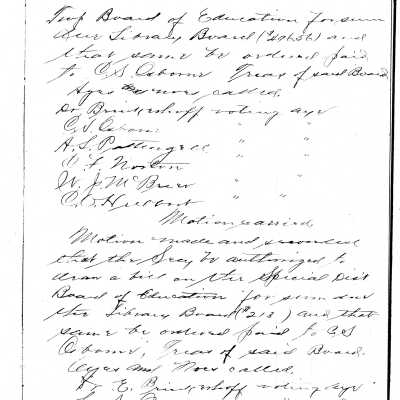 Twp Board of Education for sum
due Library Board ( ) and
that same be ordered paid
to C.S. Osborne Treas of said Board
Ayes and noes called.
Dr Brinkerhoff voting aye
C.S. Osborne " "
A.S. Pettengill " "
Norton " "
W. J. McBrier " "
C.D. " "
Motion carried.
Motion made and seconded
that the Secy be authorized to
draw a bill on the Special Dist
Board of Education for sum due
the Library Board ( ) and that
same be ordered paid to C.S
Osborne, Treas of said Board.
Ayes and Noes called.
Dr E. Brinkerhoff voting aye